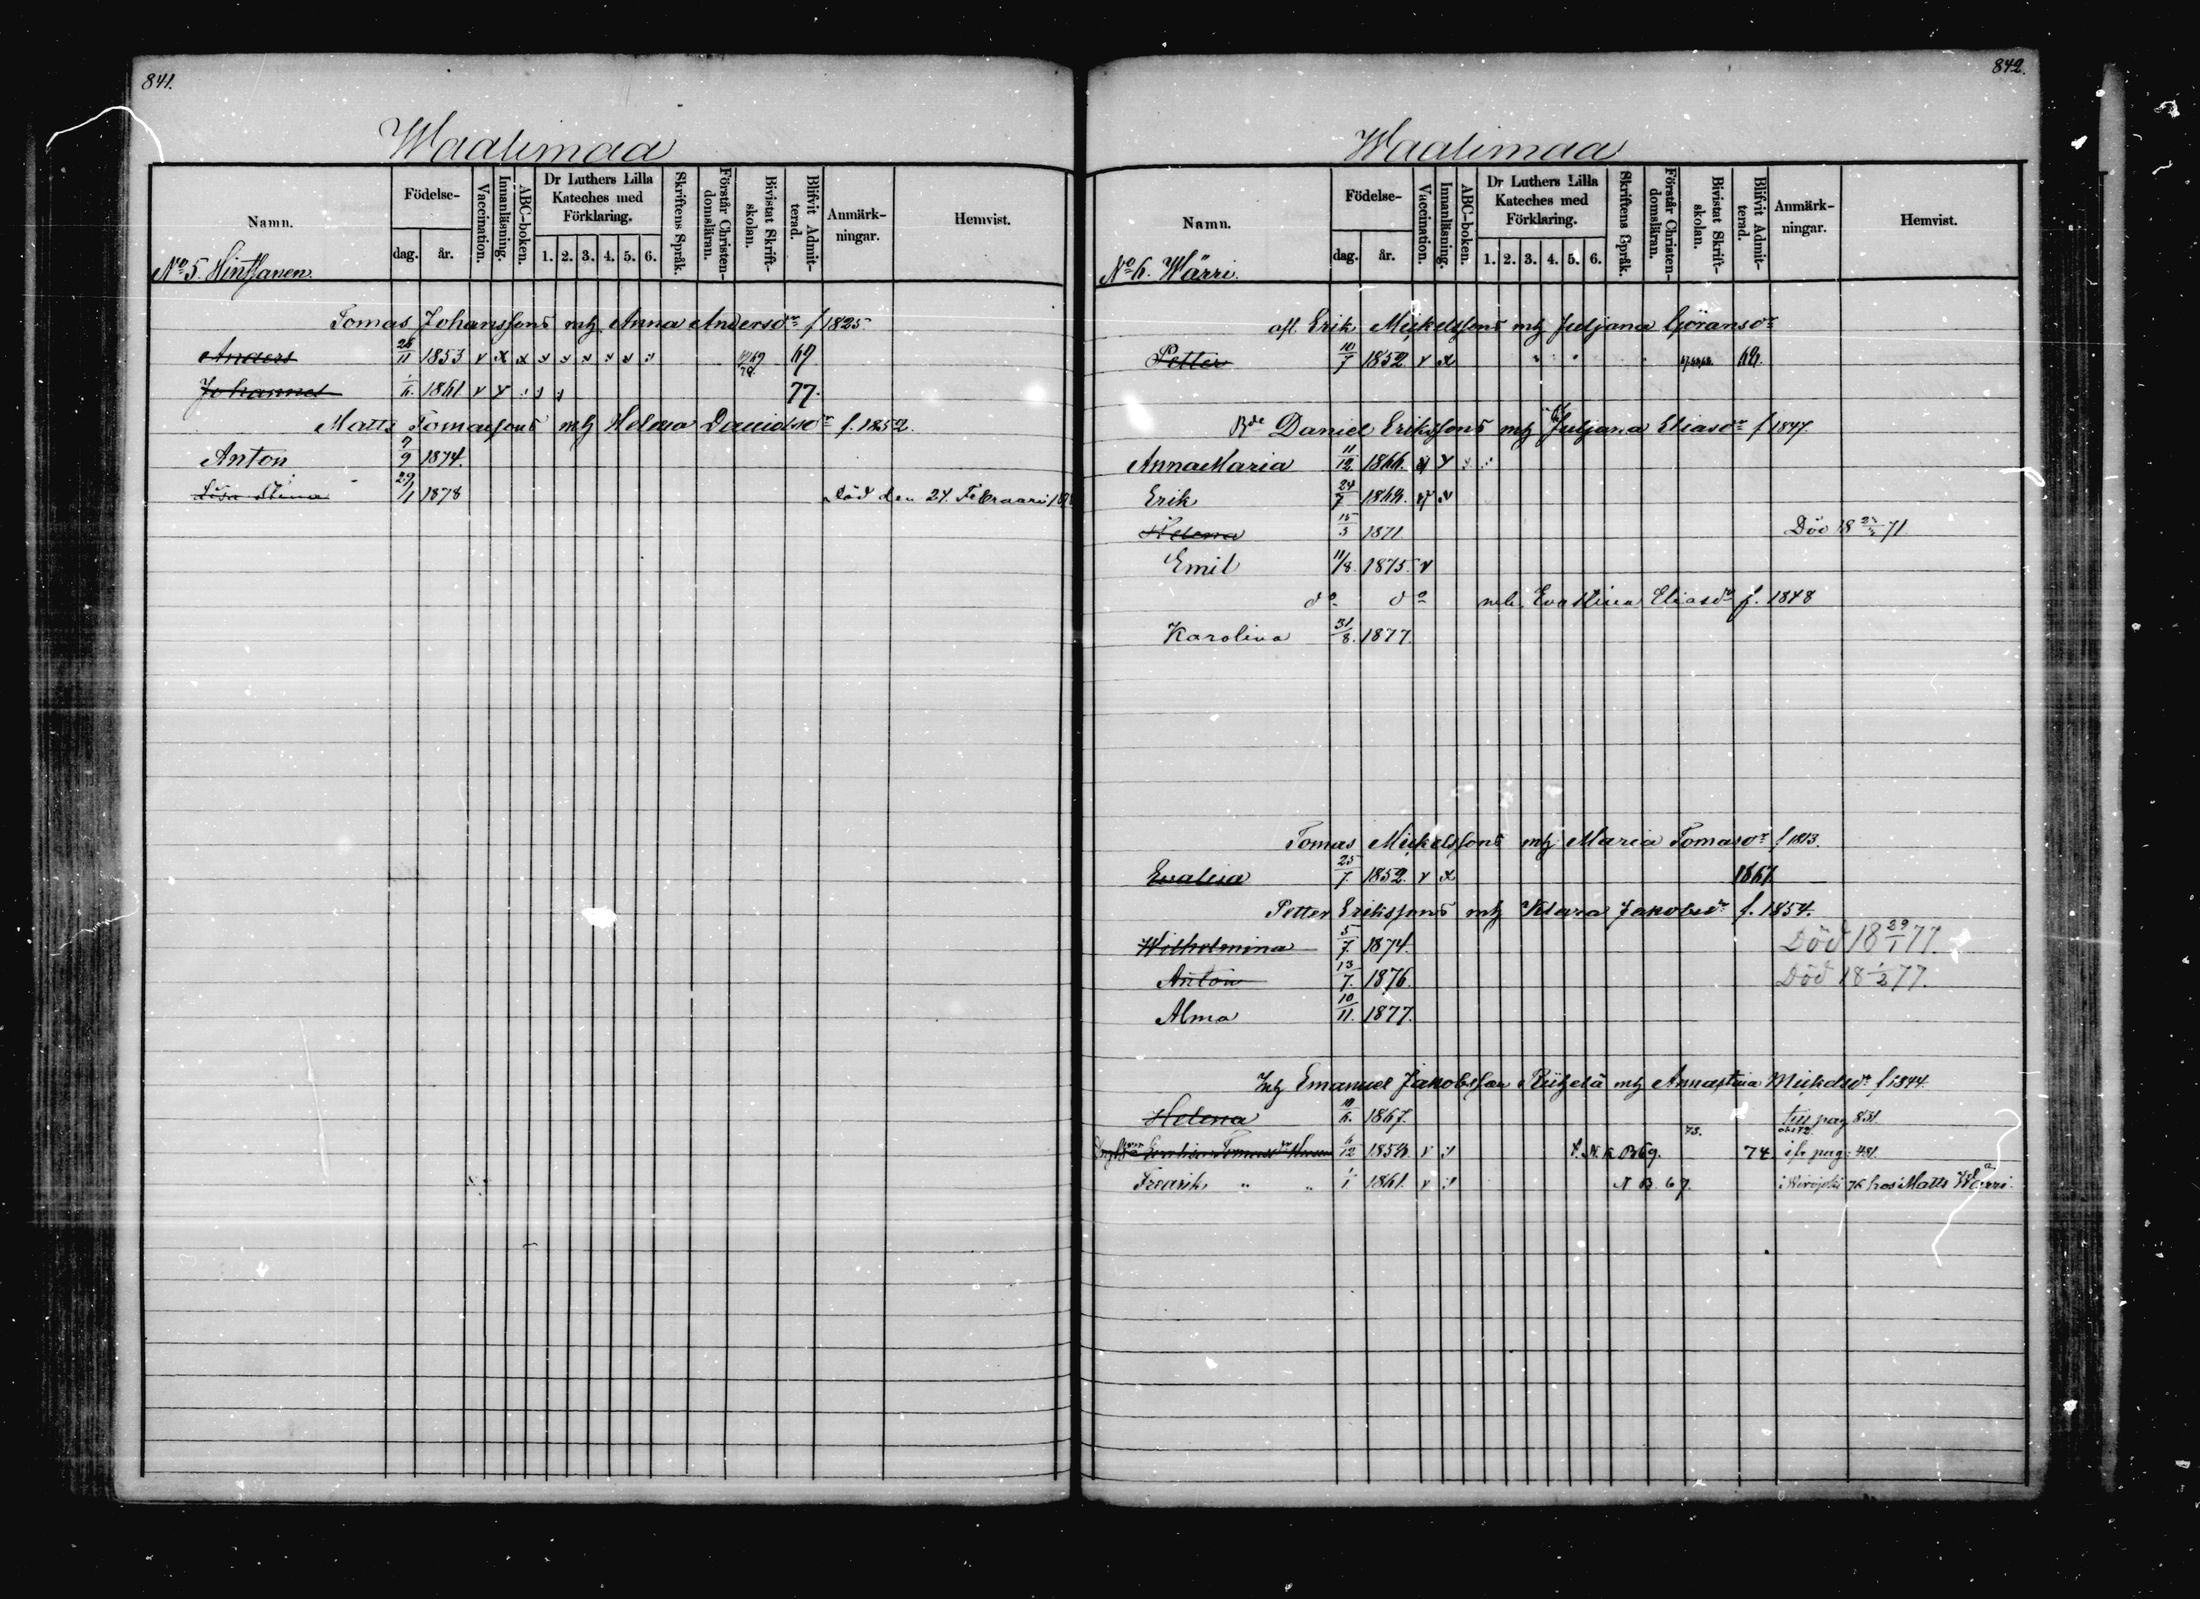 841.
Waalimaa
Namn. Födelse- dag. år. Vaccination. Innanläsning. ABC-boken. Dr Luthers Lilla Kateches med Förklaring. 1. 2. 3. 4. 5. 6. Skriftens Språk. Förstår Christendomsläran. Bivistat Skriftskolan. Blifvit Admitterad. Anmärkningar. Hemvist.
No 5. Hinttanen
Tomas Johanssons mh Anna Andersdr f 1825
Anders 26/11 1853 69
Johannes 1861 77.
Matts Tomassons mh Helena Davidsdr f. 1852.
Anton 7/9 1874.
Lisa Stina 29/1 1878 Död den 24. Februari
842.
Waalimaa
Namn. Födelse- dag. år. Vaccination. Innanläsning. ABC-boken. Dr Luthers Lilla Kateches med Förklaring. 1. 2. 3. 4. 5. 6. Skriftens Språk. Förstår Christendomsläran. Bivistat Skriftskolan. Blifvit Admitterad. Anmärkningar. Hemvist.
No 6. Wärri.
afl. Erik Mickelssons mh Juljana Göransdr
Petter 10/7 1852
Bde Daniel Erikssons mh Juljana Eliasdr f 1847.
Anna Maria 11/12 1866.
Erik 24/7
Helena 15/3 1871 Död 18 71
Emil 11/8. 1875.
do do mh. Eva Stina Eliasdr f. 1848
Karolina 31/8. 1877.
Tomas Mickelssons mh Maria Tomasdr f 1813.
Evalisa 25/7 1852. 1867
Petter Erikssons mh Klara Jakobsdr f. 1854.
Wilhelmina 5/7 1874. Död 18 29/1 77.
Anton 13/7. 1876. Död 18 1/2 77.
Alma 10/11. 1877.
Inh Emanuel Jakobsson mh Annastina Mickelsdr f 1844
Helena 1867. till pag 831.
73.
Tomasdr 74 pag. 481.
Fredrik " " 1/1 1861. N B. 67. 76 hos Matts Wärri.